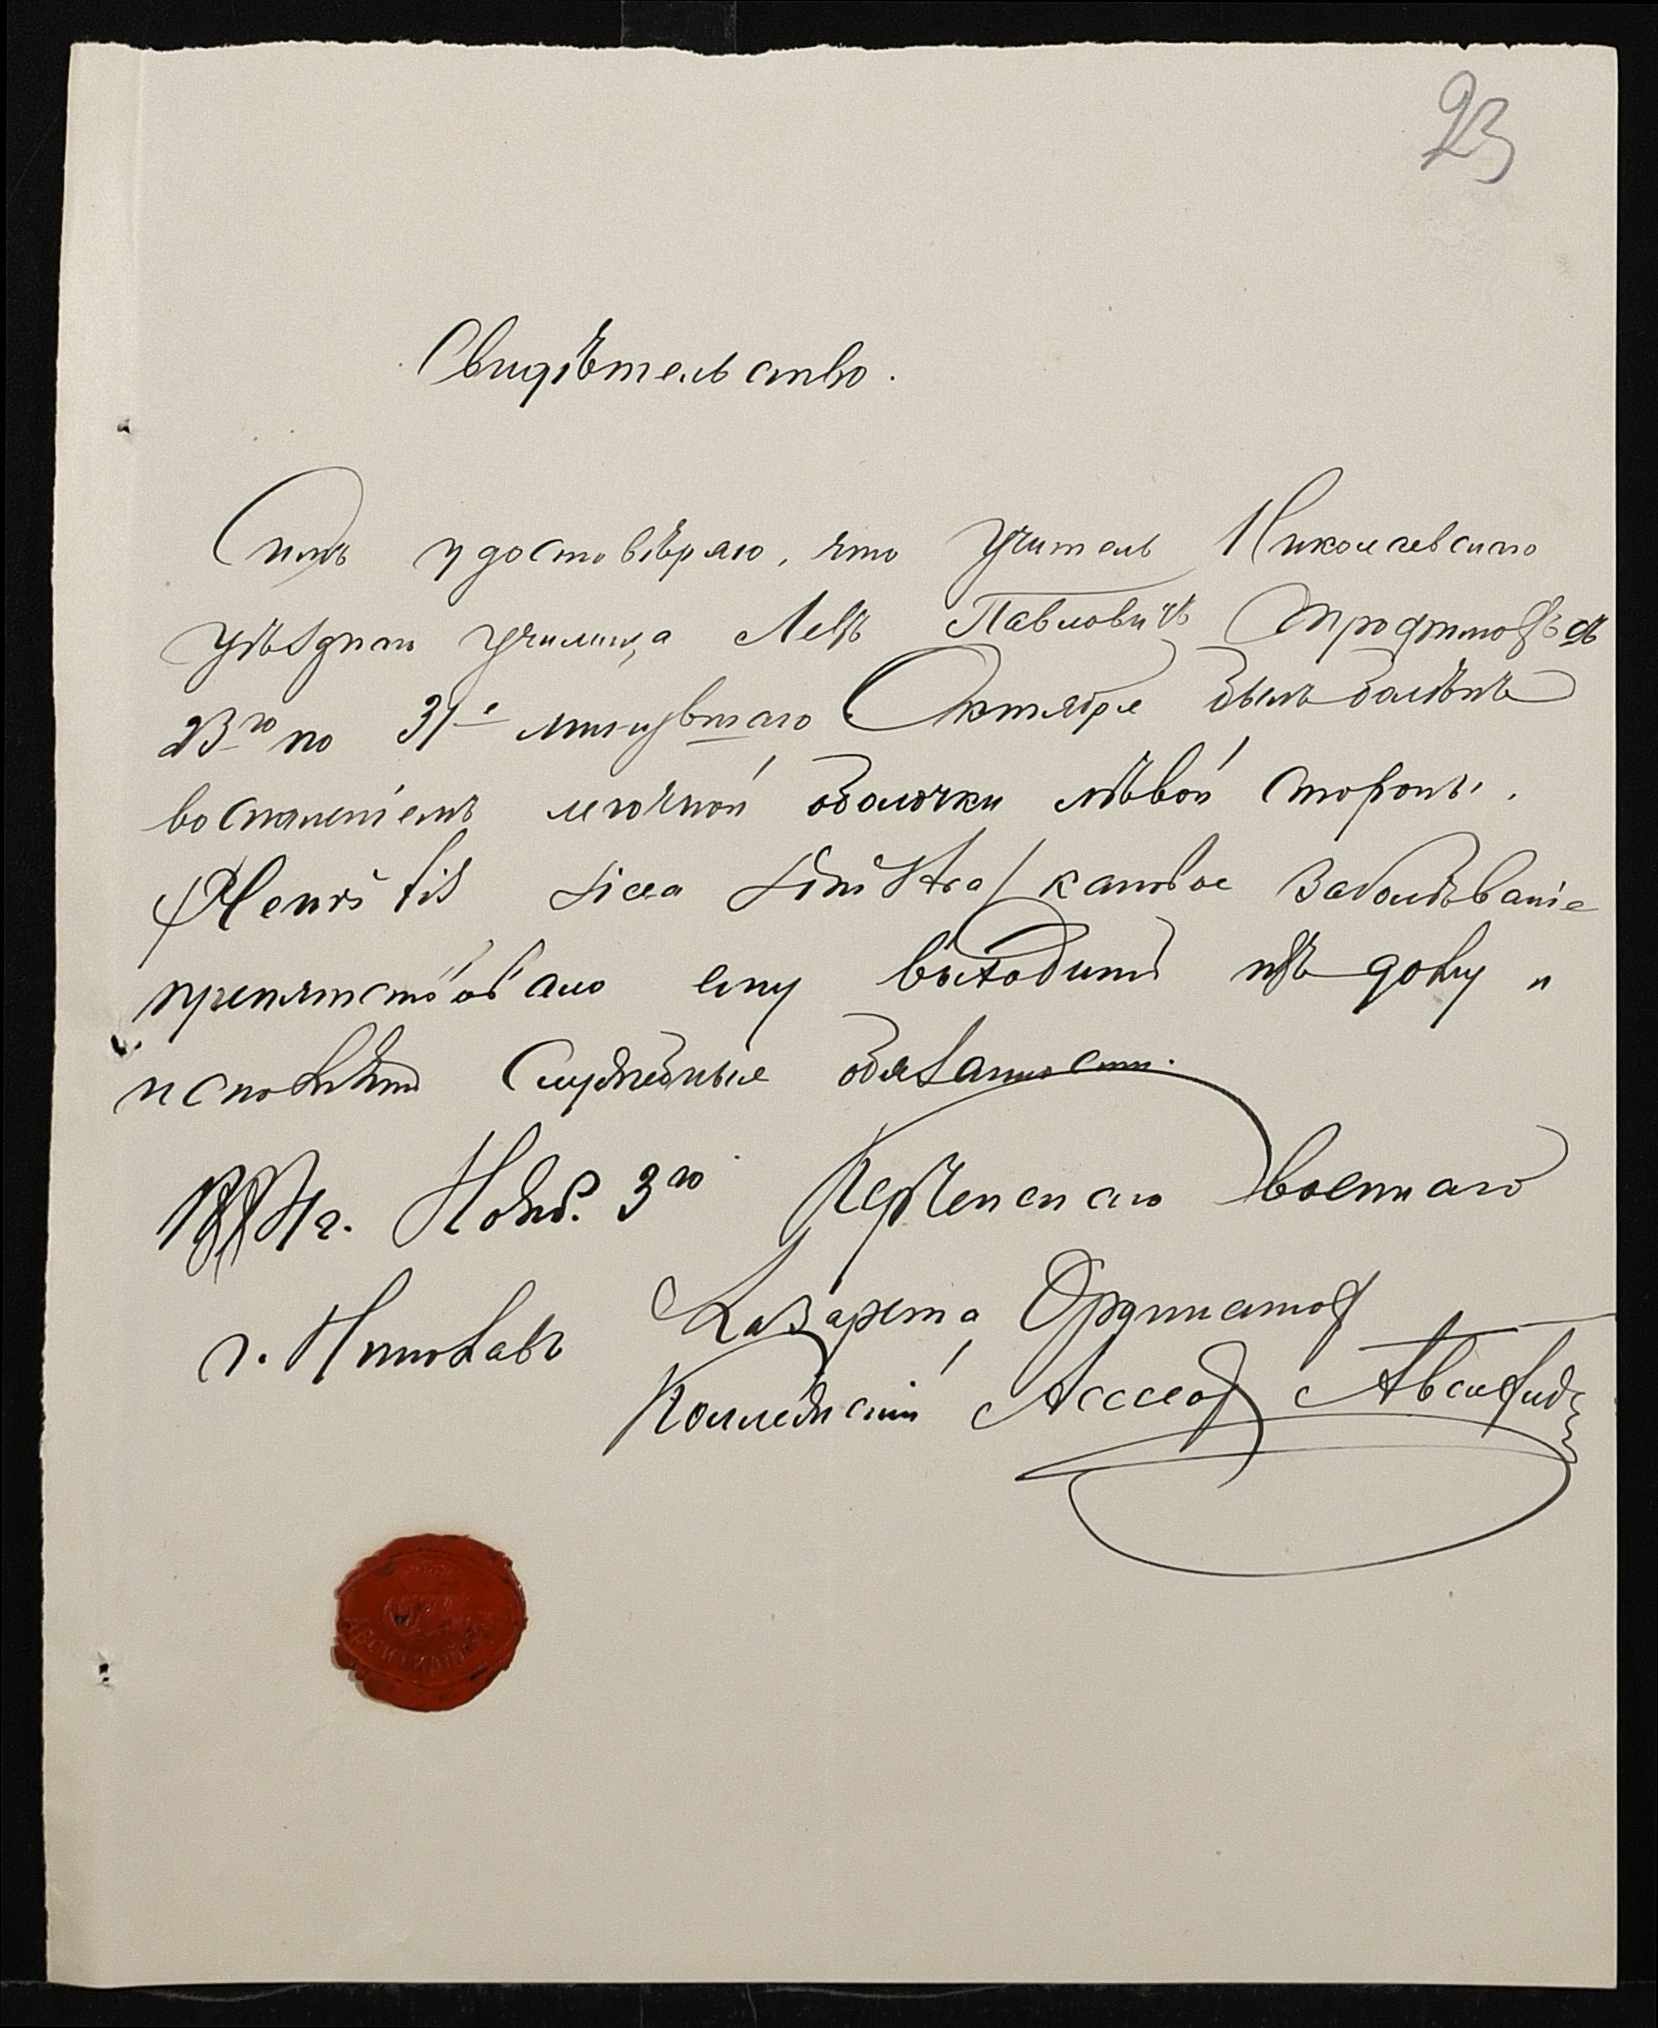 23
Свидѣтельство.
Симъ удостовѣряю, что учитель Николаевскаго
уѣзднаго училища Левъ Павловичъ съ
23го по 31е минувшаго Октября былъ болѣнъ
воспаленіемъ легочной оболочки лѣвой стороны.
/Pleuritis sicca sinistra/ каковое заболѣваніе
препятствовало ему выходить изъ дому и
исполнять служебныя обязанности.
г. Нояб. 3го Керченскаго военнаго
г. Николаевъ Лазарета Ординаторъ
Коллежскій Ассесоръ